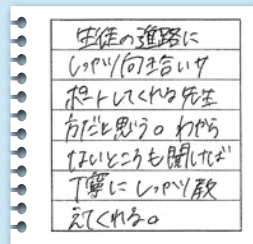 生徒の進路に
しっかり向き合いサ
ポートしてくれる先生
方だと思う。わから
ないところも聞けば
丁寧にしっかり教
えてくれる。